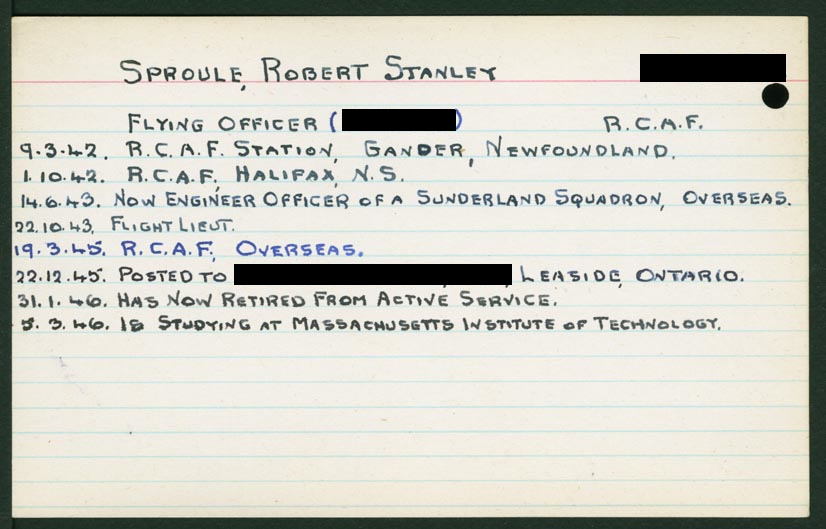 SPROULE, ROBERT STANLEY
FLYING OFFICER ( ) R.C.A.F.
9.3.42. R.C.A.F. STATION, GANDER, NEWFOUNDLAND.
1.10.42. R.C.A.F. HALIFAX, N.S.
14.6.43. NOW ENGINEER OFFICER OF A SUNDERLAND SQUADRON, OVERSEAS.
22.10.43. FLIGHT LIEUT.
19.3.45. R.C.A.F., OVERSEAS.
22.12.45. POSTED TO , LEASIDE, ONTARIO.
31.1.46. HAS NOW RETIRED FROM ACTIVE SERVICE.
5.3.46. IS STUDYING AT MASSACHUSETTS INSTITUTE OF TECHNOLOGY.